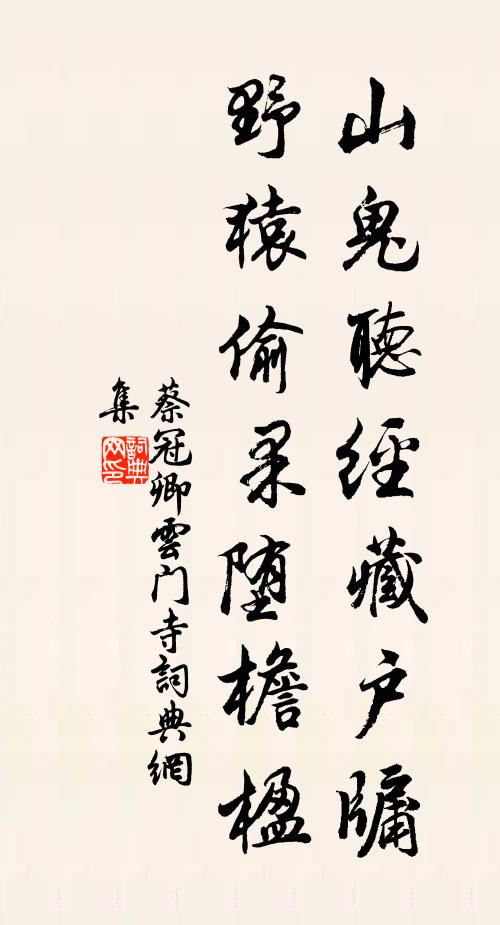 山鬼聽經藏戶牖
野猿偷果墮檐楹
蔡冠卿雲门寺詞典網
集
詞典网印